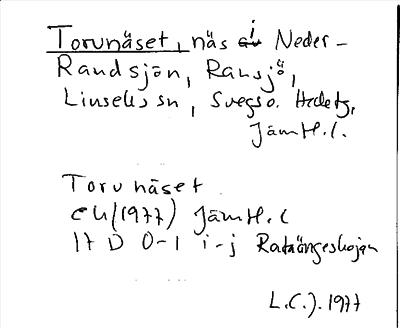 Torunäset, näs i Neder-
Randsjön, Ransjö,
Linsells sn, Svegs o. Hedetg,
Jämtl. l.
Torunäset
ek (1977) Jämtl. l
17 D 0-1 i-j
L.C.J. 1977